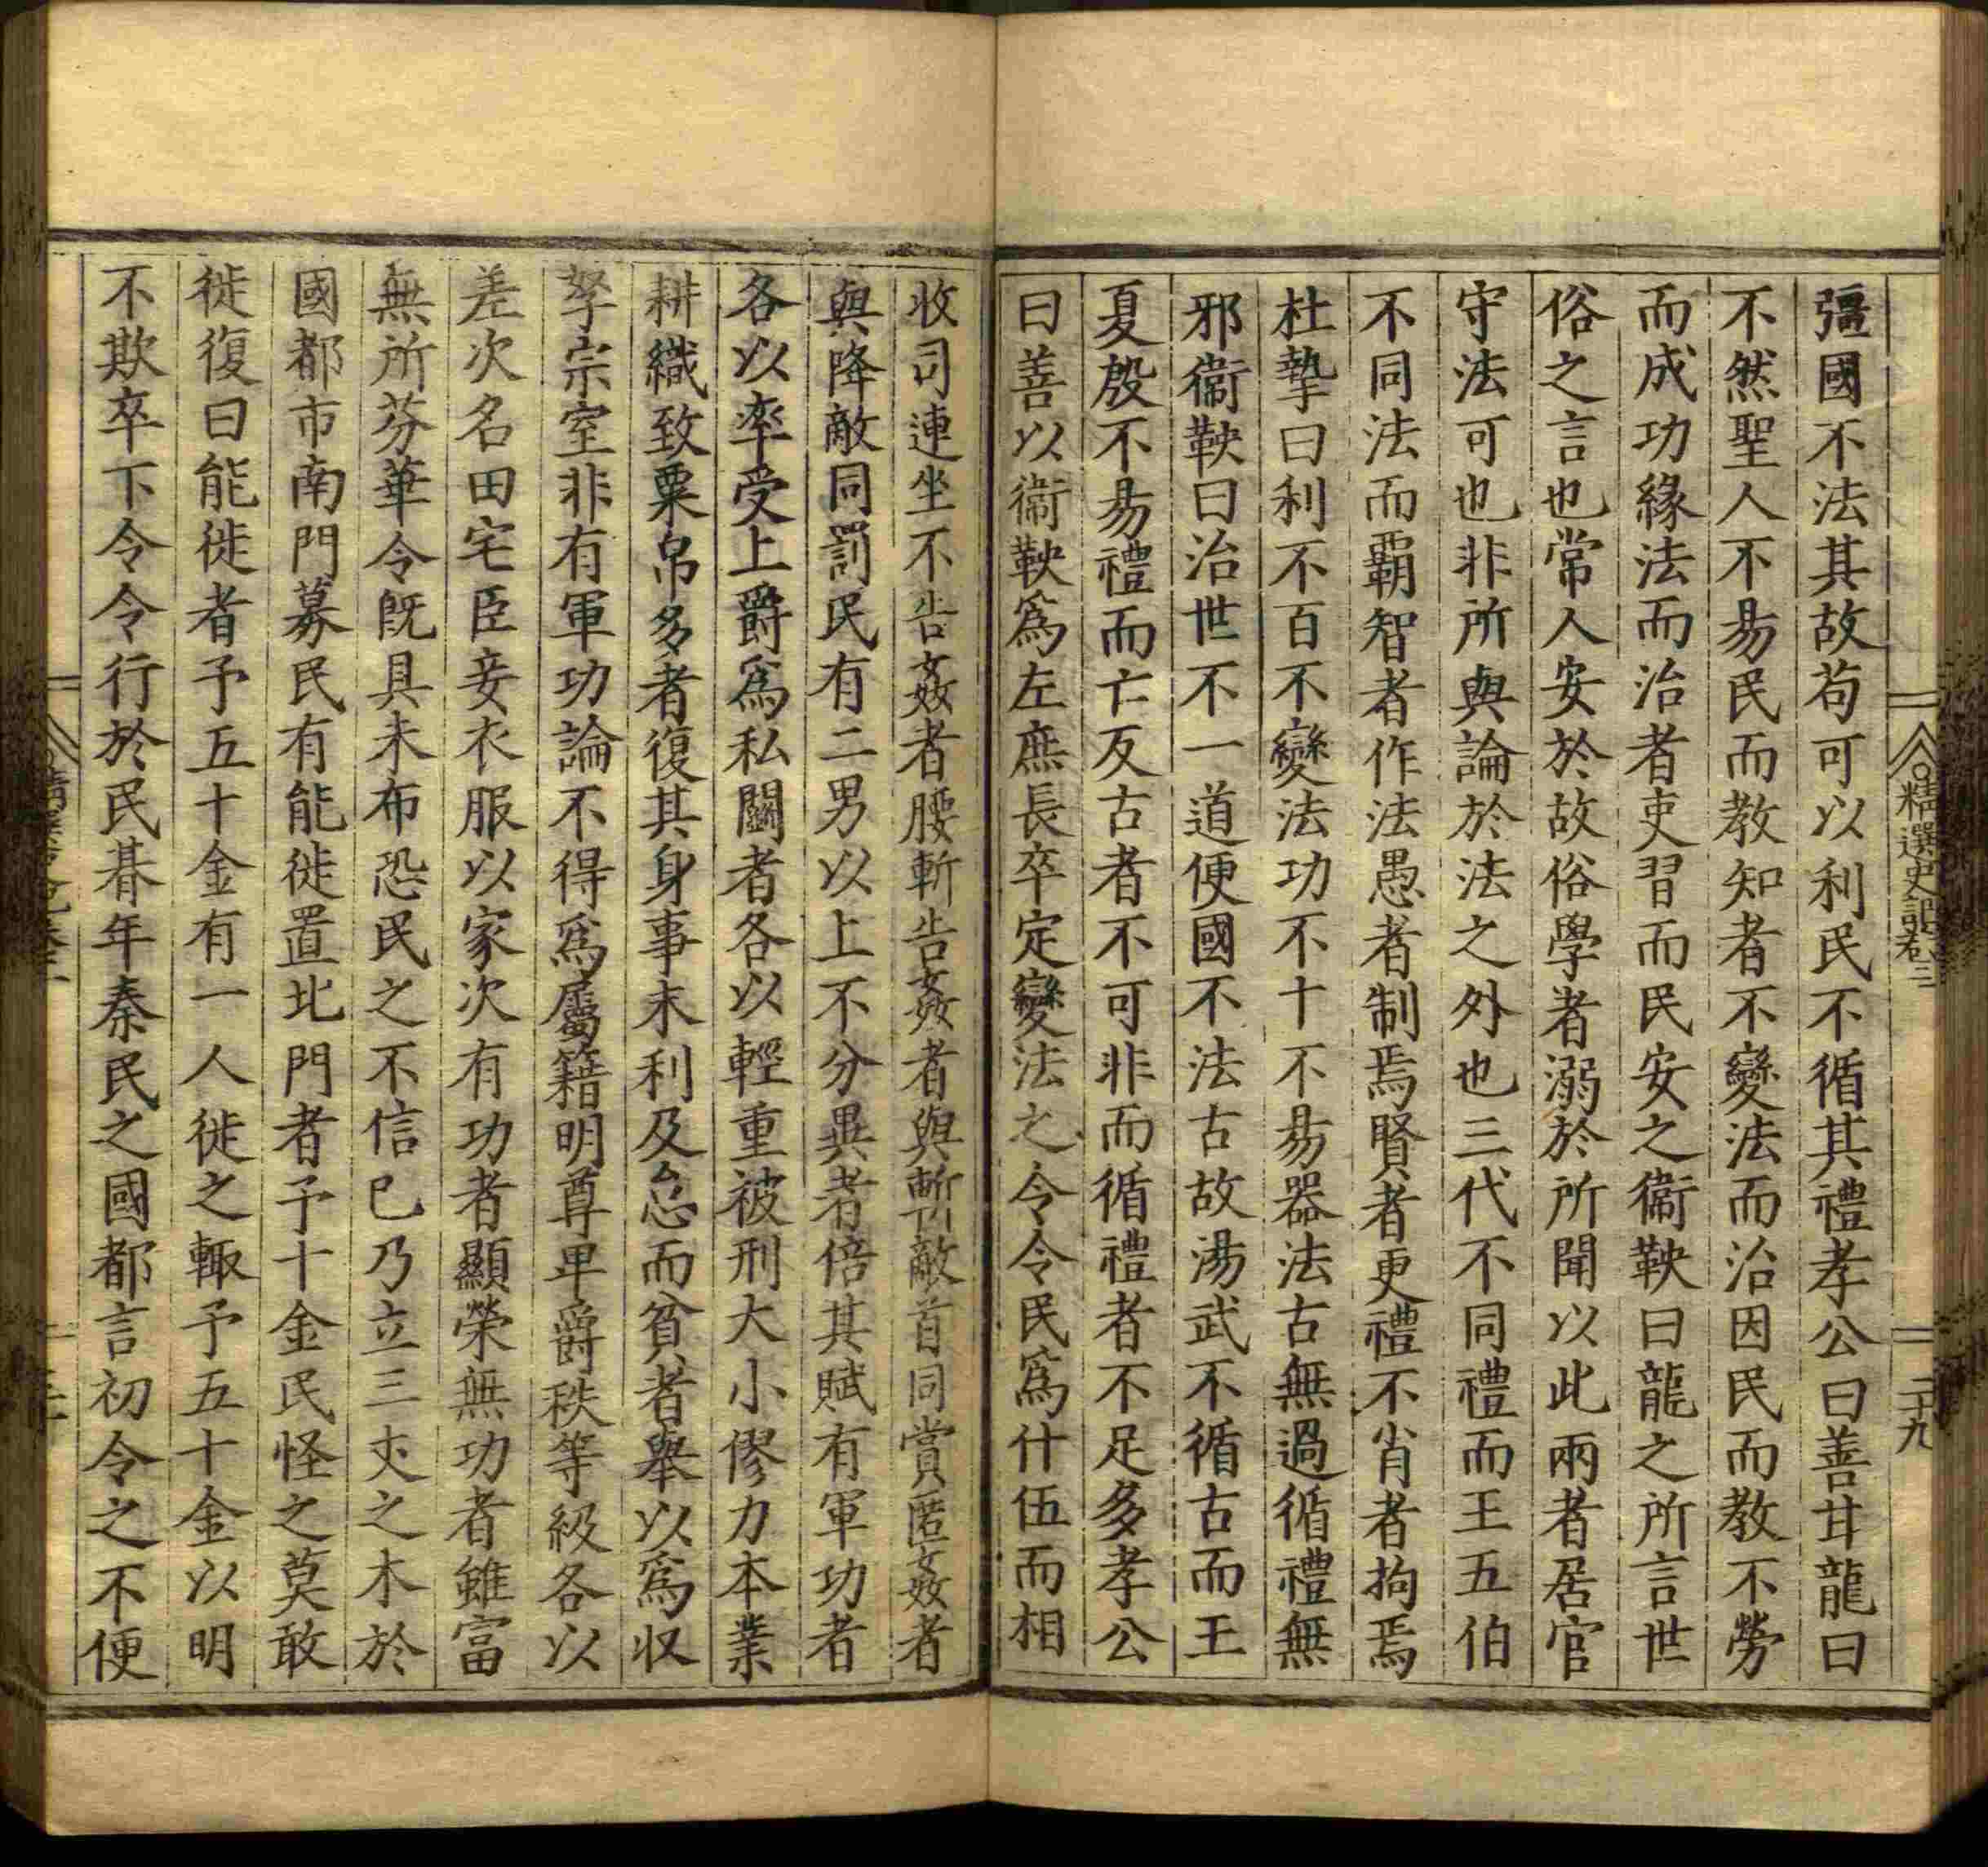 精選史記卷三
二十九
彊國不法其故苟可以利民不循其禮孝公曰善甘龍曰
不然聖人不易民而教知者不變法而治因民而教不勞
而成功緣法而治者吏習而民安之衞鞅曰龍之所言世
俗之言也常人安於故俗學者溺於所聞以此兩者居官
守法可也非所與論於法之外也三代不同禮而王五伯
不同法而覇智者作法愚者制焉賢者更禮不肖者拘焉
杜摯曰利不百不變法功不十不易器法古無過循禮無
邪衞鞅曰治世不一道便國不法古故湯武不循古而王
夏殷不易禮而亡反古者不可非而循禮者不足多孝公
曰善以衞鞅爲左庶長卒定變法之令令民爲什伍而相
收司連坐不告姦者腰斬告姦者與斬敵首同賞匿姦者
與降敵同罰民有二男以上不分異者倍其賦有軍功者
各以率受上爵爲私鬭者各以輕重被刑大小僇力本業
耕織致粟帛多者復其身事末利及怠而貧者舉以爲収
孥宗室非有軍功論不得爲屬籍明尊卑爵秩等級各以
差次名田宅臣妾衣服以家次有功者顯榮無功者雖富
無所芬華令既具未布恐民之不信已乃立三丈之木於
國都市南門募民有能徙置北門者予十金民怪之莫敢
徙復曰能徙者予五十金有一人徙之輙予五十金以明
不欺卒下令令行於民朞年秦民之國都言初令之不便